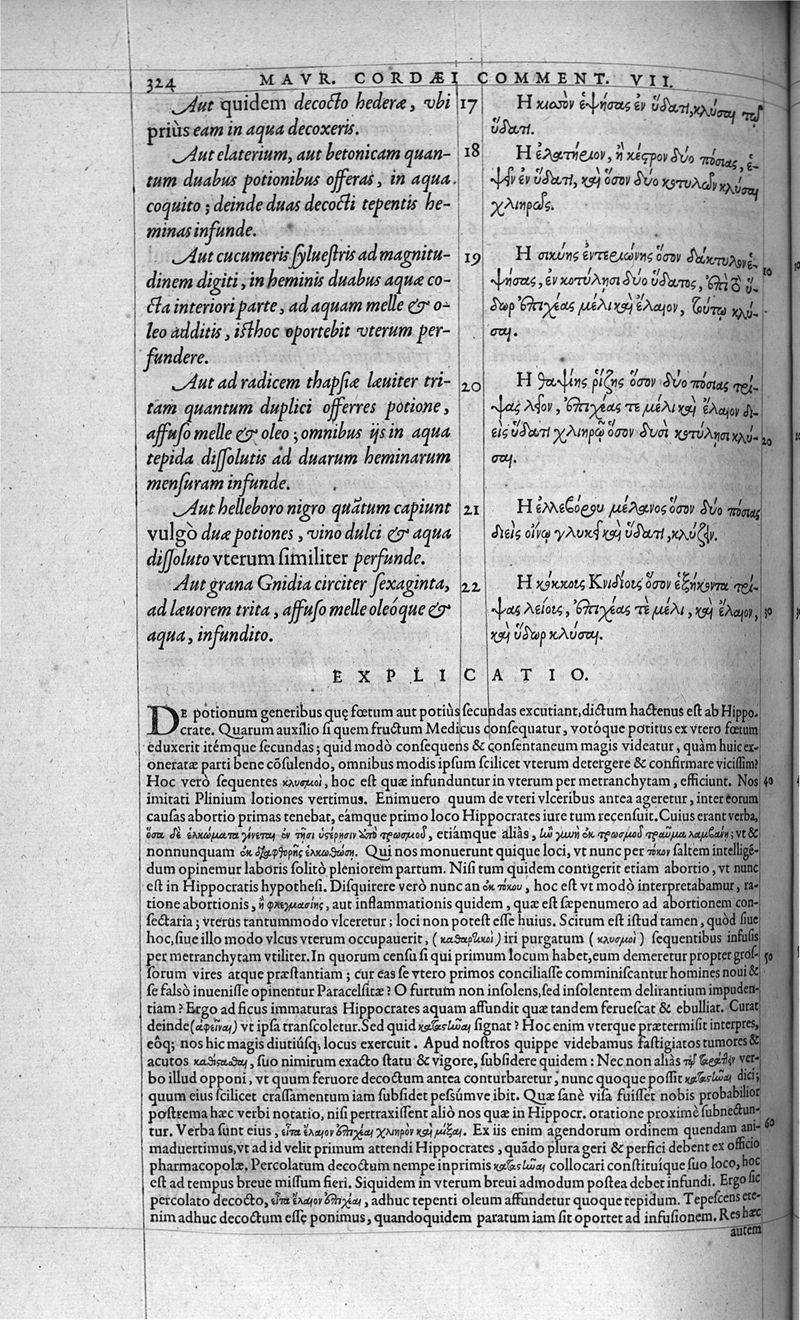 324 MAVR. CORDÆI COMMENT. VII.
Aut quidem decocto hederæ, vbi
priùs eam in aqua decoxeris.
Aut elaterium, aut betonicam quan-
tum duabus potionibus offeras, in aqua
coquito; deinde duas decocti tepentis he-
minas infunde.
Aut cucumeris sylvestris ad magnitu-
dinem digiti, in heminis duabus aquæ co-
cta interiori parte, ad aquam melle & o-
leo additis, isthoc oportebit vterum per-
fundere.
Aut ad radicem thapsiæ læuiter tri-
tam quantum duplici offerres potione,
affuso melle & oleo; omnibus ijs in aqua
tepida dissolutis ad duarum heminarum
mensuram infunde.
Aut helleboro nigro quãtum capiunt
vulgò duæ potiones, vino dulci & aqua
dissoluto vterum similiter perfunde.
Aut grana Gnidia circiter sexaginta,
ad læuorem trita, affuso melle oleóque &
aqua, infundito.
17 Η κισσὸν ἑψήσας ἐν ὕδατι, κλύσαι τῷ
ὕδατι.
18 Η ἐλατήριον, ἢ κέστρον δύο πόσιας, ἕ-
ψειν ἐν ὕδατι, καὶ ὅσον δύο κοτυλῶν κλύσαι
χλιηρῶς.
19 Η σικύης ἐντεριώνης ὅσον δάκτυλον ἑ-
ψήσας, ἐν κοτύλῃσι δύο ὕδατος, ἐπὶ τὸ ὕ- 10
δωρ ἐπιχέας μέλι καὶ ἔλαιον, τούτῳ κλύ-
σαι.
20 Η θαψίης ῥίζης ὅσον δύο πόσιας τρί-
ψας λεῖον, ἐπιχέας τε μέλι καὶ ἔλαιον δι-
εὶς ὕδατι χλιηρῷ ὅσον δυσὶ κοτύλῃσι κλύ- 20
σαι.
21 Η ἑλλεβόρου μέλανος ὅσον δύο πόσιας
διεὶς οἴνῳ γλυκεῖ καὶ ὕδατι, κλύζειν.
22 Η κόκκους Κνιδίους ὅσον ἑξήκοντα τρί-
ψας λείους, ἐπιχέας τὲ μέλι, καὶ ἔλαιον, 30
καὶ ὕδωρ κλύσαι.
EXPLICATIO.
DE potionum generibus quę fœtum aut potiùs secundas excutiant, dictum hactenus est ab Hippo-
crate. Quarum auxilio si quem fructum Medicus consequatur, votóque potitus ex vtero fœtum
eduxerit itémque secundas; quid modò consequens & consentaneum magis videatur, quàm huic ex-
oneratæ parti bene cõsulendo, omnibus modis ipsum scilicet vterum detergere & confirmare vicissim?
Hoc verò sequentes κλυσμοὶ, hoc est quæ infunduntur in vterum per metranchytam, efficiunt. Nos 40
imitati Plinium lotiones vertimus. Enimuero quum de vteri vlceribus antea ageretur, inter eorum
causas abortio primas tenebat, eámque primo loco Hippocrates iure tum recensuit. Cuius erant verba,
ὅσα δὲ ἑλκώματα γίνεται ἐν τῇσι ὑστέρῃσιν ἀπὸ τρωσμοῦ, etiámque aliàs, ἢν γυνὴ ἐκ τρωσμοῦ τραῦμα λαμβάνῃ; vt &
nonnunquam ἐκ διαφθορῆς ἑλκωθῶσι. Qui nos monuerunt quique loci, vt nunc per τόκον saltem intelligẽ-
dum opinemur laboris solitò pleniorem partum. Nisi tum quidem contigerit etiam abortio, vt nunc
est in Hippocratis hypothesi. Disquirere verò nunc an ἐκ τόκου, hoc est vt modò interpretabamur, ra-
tione abortionis, ἢ φλεγμασίης, aut inflammationis quidem, quæ est sæpenumero ad abortionem con-
sectaria; vterus tantummodo vlceretur; loci non potest esse huius. Scitum est istud tamen, quòd siue
hoc, siue illo modo vlcus vterum occupauerit, (καθαρτικοὶ) iri purgatum (κλυσμοὶ) sequentibus infusis
per metranchytam vtiliter. In quorum censu si qui primum locum habet, eum demeretur propter gros- 50
sorum vires atque præstantiam; cur eas se vtero primos conciliasse comminiscantur homines noui &
se falsò inuenisse opinentur Paracelsitæ? O furtum non insolens, sed insolentem delirantium impuden-
tiam? Ergo ad ficus immaturas Hippocrates aquam affundit quæ tandem feruescat & ebulliat. Curat
deinde (ἀφεῖναι) vt ipsa transcoletur. Sed quid καταστῆναι signat? Hoc enim vterque prætermisit interpres,
eôq; nos hic magis diutiúsq; locus exercuit. Apud nostros quippe videbamus fastigiatos tumores &
acutos καθίστασθαι, suo nimirum exacto statu & vigore, subsidere quidem: Nec non aliàs τῷ ταράττειν ver-
bo illud opponi, vt quum feruore decoctum antea conturbaretur, nunc quoque possit καταστῆναι dici;
quum eius scilicet crassamentum iam subsidet pessúmve ibit. Quæ sanè visa fuisset nobis probabilior
postrema hæc verbi notatio, nisi pertraxissent aliò nos quæ in Hippocr. oratione proximè subnectun-
tur. Verba sunt eius, εἶτα ἔλαιον ἐπιχέαι χλιηρὸν καὶ μίξαι. Ex iis enim agendorum ordinem quendam ani- 60
maduertimus, vt ad id velit primum attendi Hippocrates, quãdo plura geri & perfici debent ex officio
pharmacopolæ. Percolatum decoctum nempe inprimis καταστῆναι collocari constituíque suo loco, hoc
est ad tempus breue missum fieri. Siquidem in vterum breui admodum postea debet infundi. Ergo sic
percolato decocto, εἶτα ἔλαιον ἐπιχέαι, adhuc tepenti oleum affundetur quoque tepidum. Tepescens ete-
nim adhuc decoctum esse ponimus, quandoquidem paratum iam sit oportet ad infusionem. Res hæc
autem